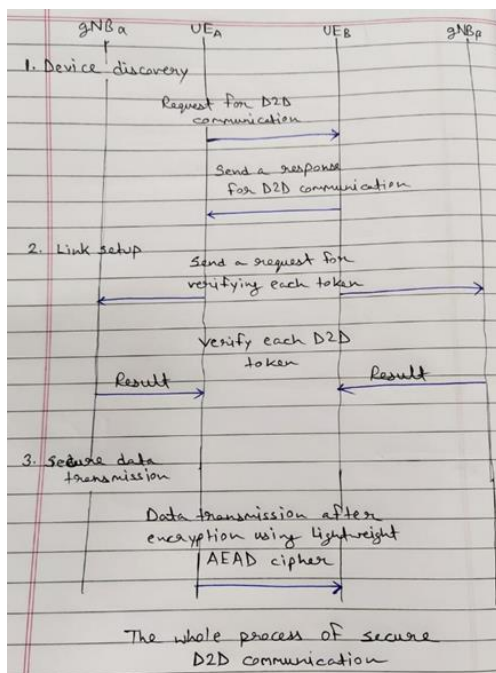 gNBα UE_A UE_B gNBβ
1. Device discovery
Request for D2D
communication
Send a response
for D2D communication
2. Link setup
Send a request for
verifying each token
Verify each D2D
token
Result Result
3. Secure data
transmission
Data transmission after
encryption using Lightweight
AEAD cipher
The whole process of secure
D2D communication